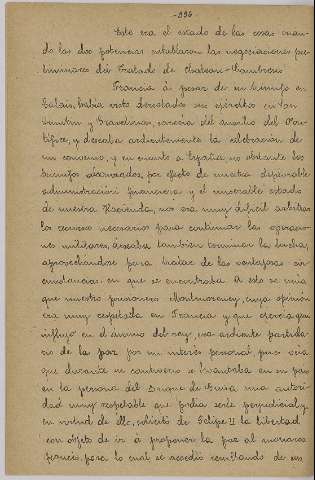 -996-
Este era el estado de las cosas cuan-
do las dos potencias entablaron las negociaciones pre-
liminares del Tratado de Chateau-Cambresis
Francia á pesar de su triunfo en
Calais, había visto derrotados sus ejércitos en San
Quintin y Gravelinas, carecia del auxilio del Pon-
tífice, y deseaba ardientemente la celebración de
un convenio, y en cuanto á España, no obstante los
triunfos alcanzados, por efecto de nuestra deplorable
administracion financiera y el miserable estado
de nuestra Hacienda, nos era muy dificil arbitrar
los recursos necesarios para continuar las operacio-
nes militares, deseaba tambien terminar la lucha,
aprovechándose para tratar de las ventajosas cir-
cunstancias en que se encontraba. A esto se unia
que nuestro prisionero Montmorency, cuya opinión
era muy respetada en Francia y que ejercia gran
influjo en el ánimo del rey, era ardiente partida-
rio de la paz por su interés personal, pues veia
que durante su cautiverio se levantaba en su pais
en la persona del Duque de Guisa una autori-
dad muy respetable que podia serle perjudicial, y
en virtud de ello, solicitó de Felipe II la libertad
con objeto de ir á proponer la paz al monarca
francés, para lo cual se accedió resultando de su